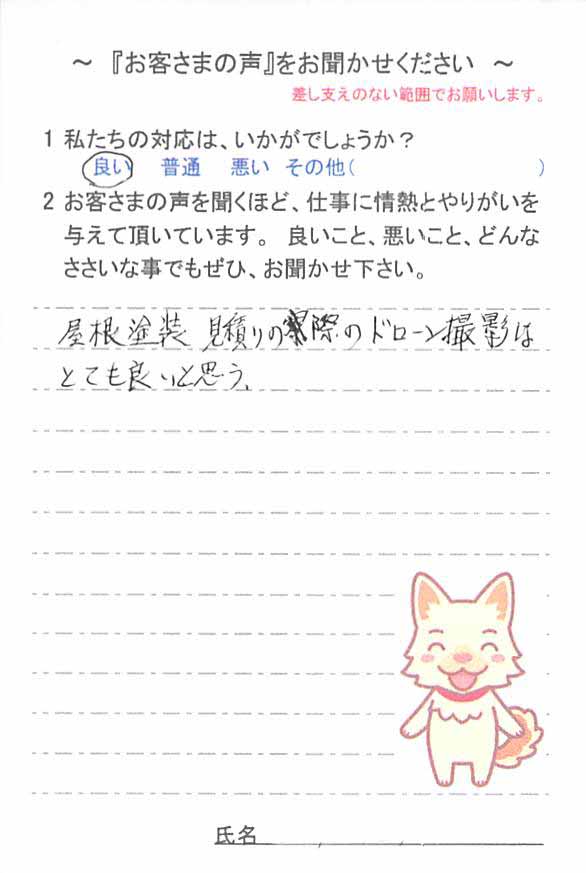 ～ 『お客さまの声』をお聞かせください ～
差し支えのない範囲でお願いします。
1 私たちの対応は、いかがでしょうか？
良い 普通 悪い その他( )
2 お客さまの声を聞くほど、仕事に情熱とやりがいを
与えて頂いています。 良いこと、悪いこと、どんな
ささいな事でもぜひ、お聞かせ下さい。
屋根塗装 見積りの際のドローン撮影は
とても良いと思う。
氏名